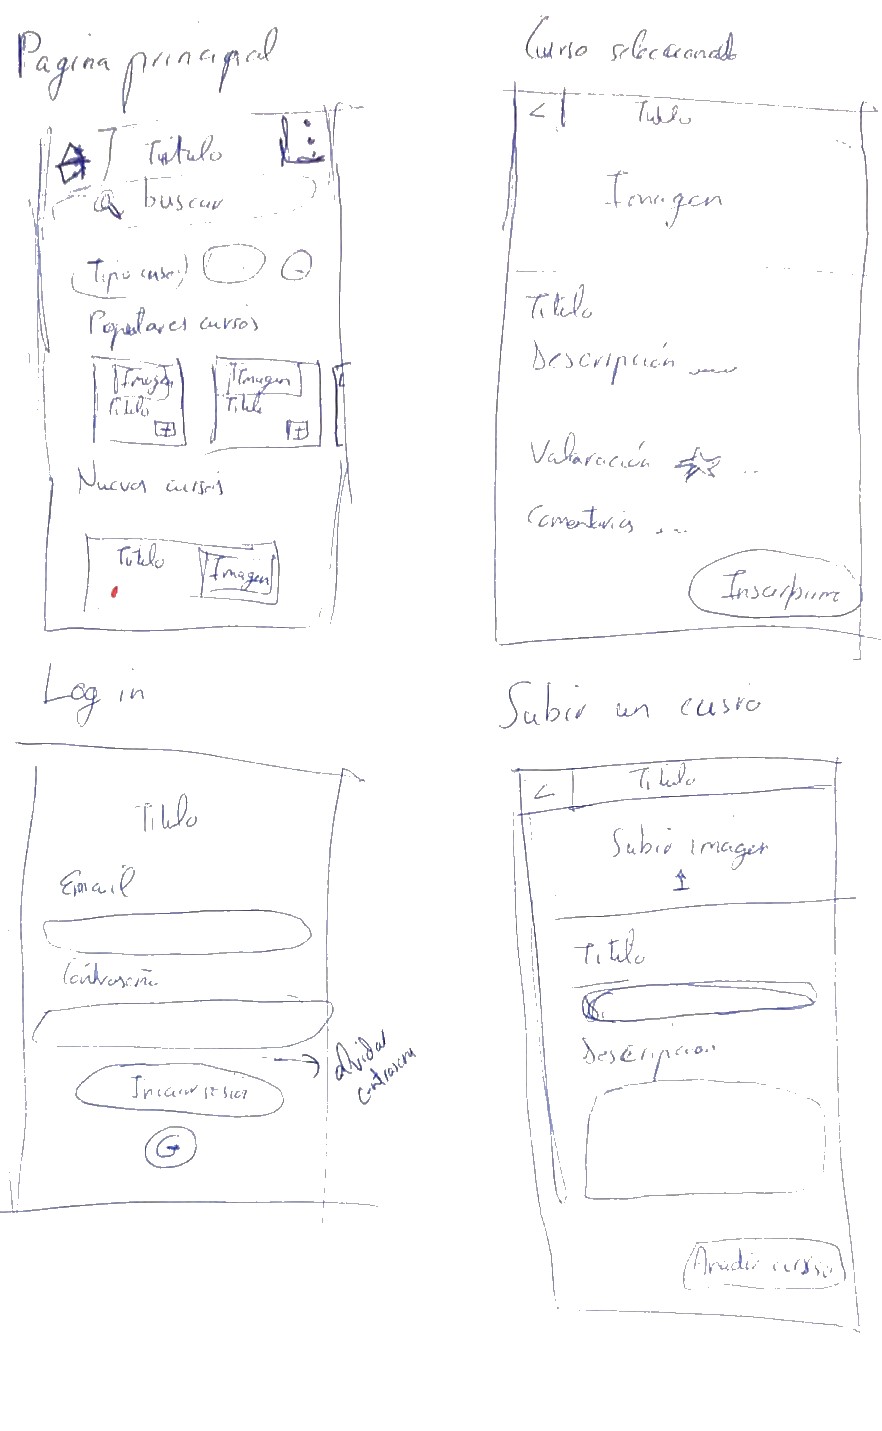 Pagina principal
Titulo
buscar
Tipo curso
Populares cursos
Imagen
Titulo
+
Imagen
Titulo
+
Nuevos cursos
Titulo
Imagen
Curso seleccionado
<
Titulo
Imagen
Titulo
Descripción
Valaración
Comentarios ...
Log in
Titulo
Email
Contraseña
Iniciar sesion
G
olvidar
contrasena
Subir un
<
Titulo
Subir imagen
Titulo
Descripcion
Añadir curso